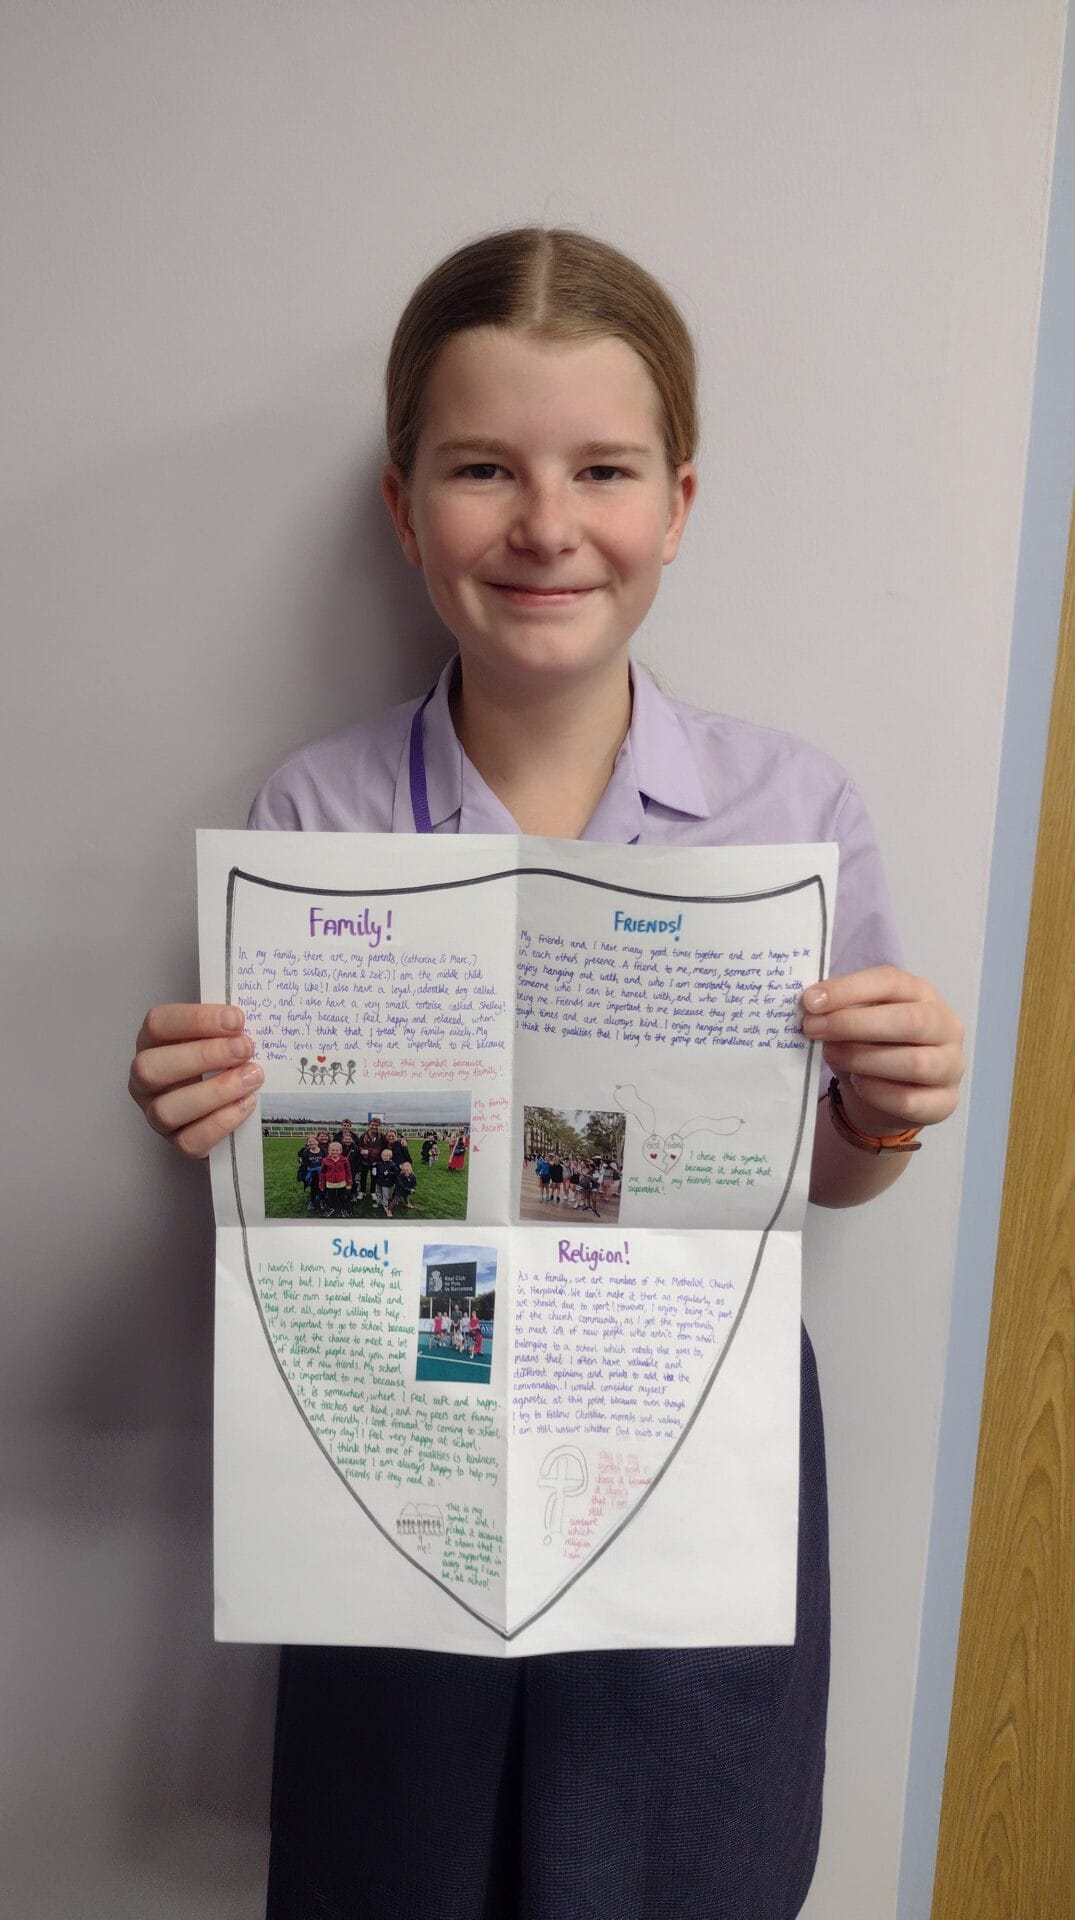 Family!
In my family, there are, my parents, (Catherine & Marc,)
and my two sisters, (Anna & Zoë.) I am the middle child
which I really like! I also have a loyal, adorable dog called
Nelly, and I also have a very small tortoise called Shelley!
love my family because I feel happy and relaxed, when
with them. I think that I treat my family nicely. My
family loves sport and they are important to me because
them.
I chose this symbol because,
it represents me loving my family!
My family
and me
in Ascott!
FRIENDS!
My friends and I have many good times together and are happy to be
in each others presence. A friend to me, means, someone who I
enjoy hanging out with and who I am constantly having fun with.
Someone who I can be honest with, and who likes me for just
being me. Friends are important to me because they get me through
tough times and are always kind. I enjoy hanging out with my friends
I think the qualities that I bring to the group are friendliness and kindness.
Best Friends
I chose this symbol
because it shows that
me and my friends cannot be
separated!
School!
I haven't known my classmates for
very long but I know that they all
have their own special talents and
they are all, always willing to help.
It is important to go to school because
you get the chance to meet a lot
of different people and you make
a lot of new friends. My school
is important to me because
it is somewhere, where I feel safe and happy.
The teachers are kind, and my peers are funny
and friendly. I look forward to coming to school
every day! I feel very happy at school.
I think that one of qualities is kindness,
because I am always happy to help my
friends if they need it.
Real Club
de Polo
de Barcelona
me!
This is my
symbol and I
picked it because
it shows that I
am supported in
every way I can
be, at school
Religion!
As a family, we are members of the Methodist Church
in Harpenden. We don't make it there as regularly as
we should due to sport! However, I enjoy being a part
of the church community, as I get the opportunity
to meet lots of new people who aren't from school.
Belonging to a school which nobody else goes to,
means that I often have valuable and
different opinions and points to add to the
conversation. I would consider myself
agnostic at this point because even though
I try to follow Christian morals and values,
I am still unsure whether God exists or not.
This is my
symbol and I
chose it because
it shows
that I am
still
unsure
which
religion
I am.